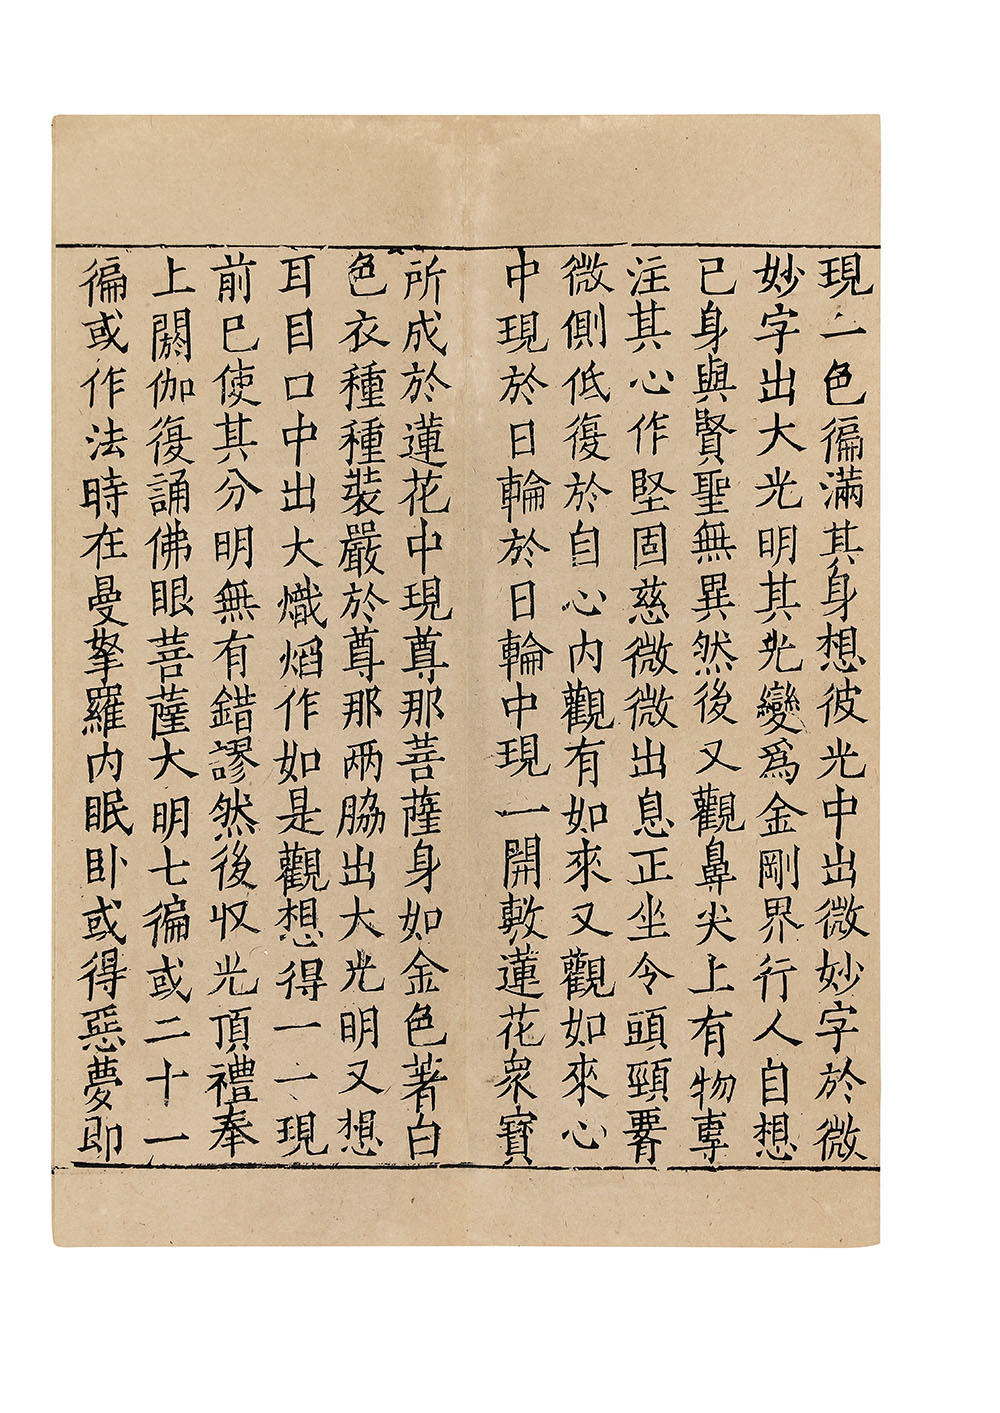 現一色徧滿其身想彼光中出微妙字於微
妙字出大光明其光變爲金剛界行人自想
已身與賢聖無異然後又觀鼻尖上有物專
注其心作堅固慈微微出息正坐令頭頸𭣣
微側低復於自心內觀有如來又觀如來心
中現於日輪於日輪中現一開敷蓮花衆寳
所成於蓮花中現尊那菩薩身如金色著白
色衣種種裝嚴於尊那兩脇出大光明又想
耳目口中出大熾焰作如是觀想得一一現
前巳使其分明無有錯謬然後収光頂禮奉
上閼伽復誦佛眼菩薩大明七徧或二十一
徧或作法時在曼拏羅內眠卧或得惡夢即